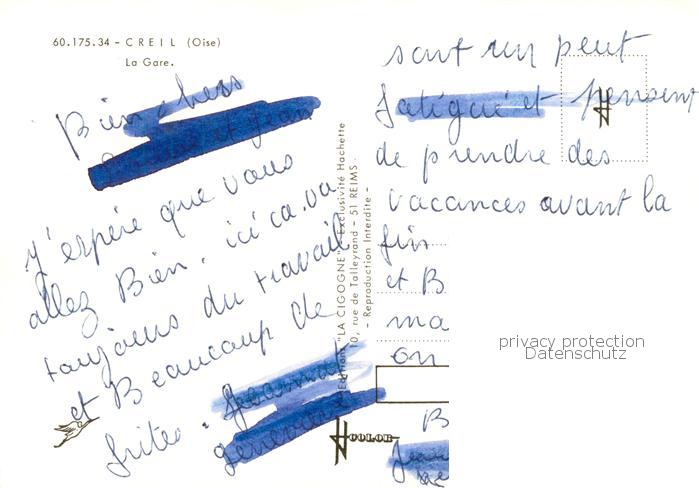 60.175.34 - CREIL (Oise)
La Gare.
Bien chers
et Jean
J'espère que vous
allez Bien, ici ca.va
toujours du travail
et Beaucoup de
frites.
Editions "LA CIGOGNE" Exclusivité Hachette
10, rue de Talleyrand - 51 REIMS
- Reproduction Interdite -
COLOR
sont un peut
fatigué et pensent
de prendre des
vacances avant la
fin
et B
ma
on
B
privacy protection
Datenschutz